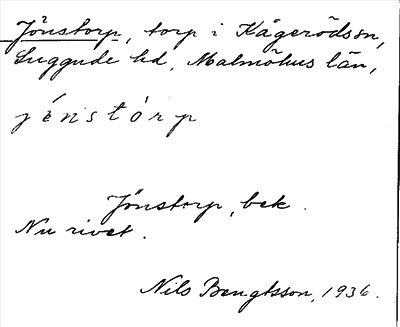 Jönstorp, torp i Kågerödssn,
Luggude hd, Malmöhus län,
jénstòrp
Jönstorp, bek.
Nu rivet.
Nils Bengtsson, 1936.